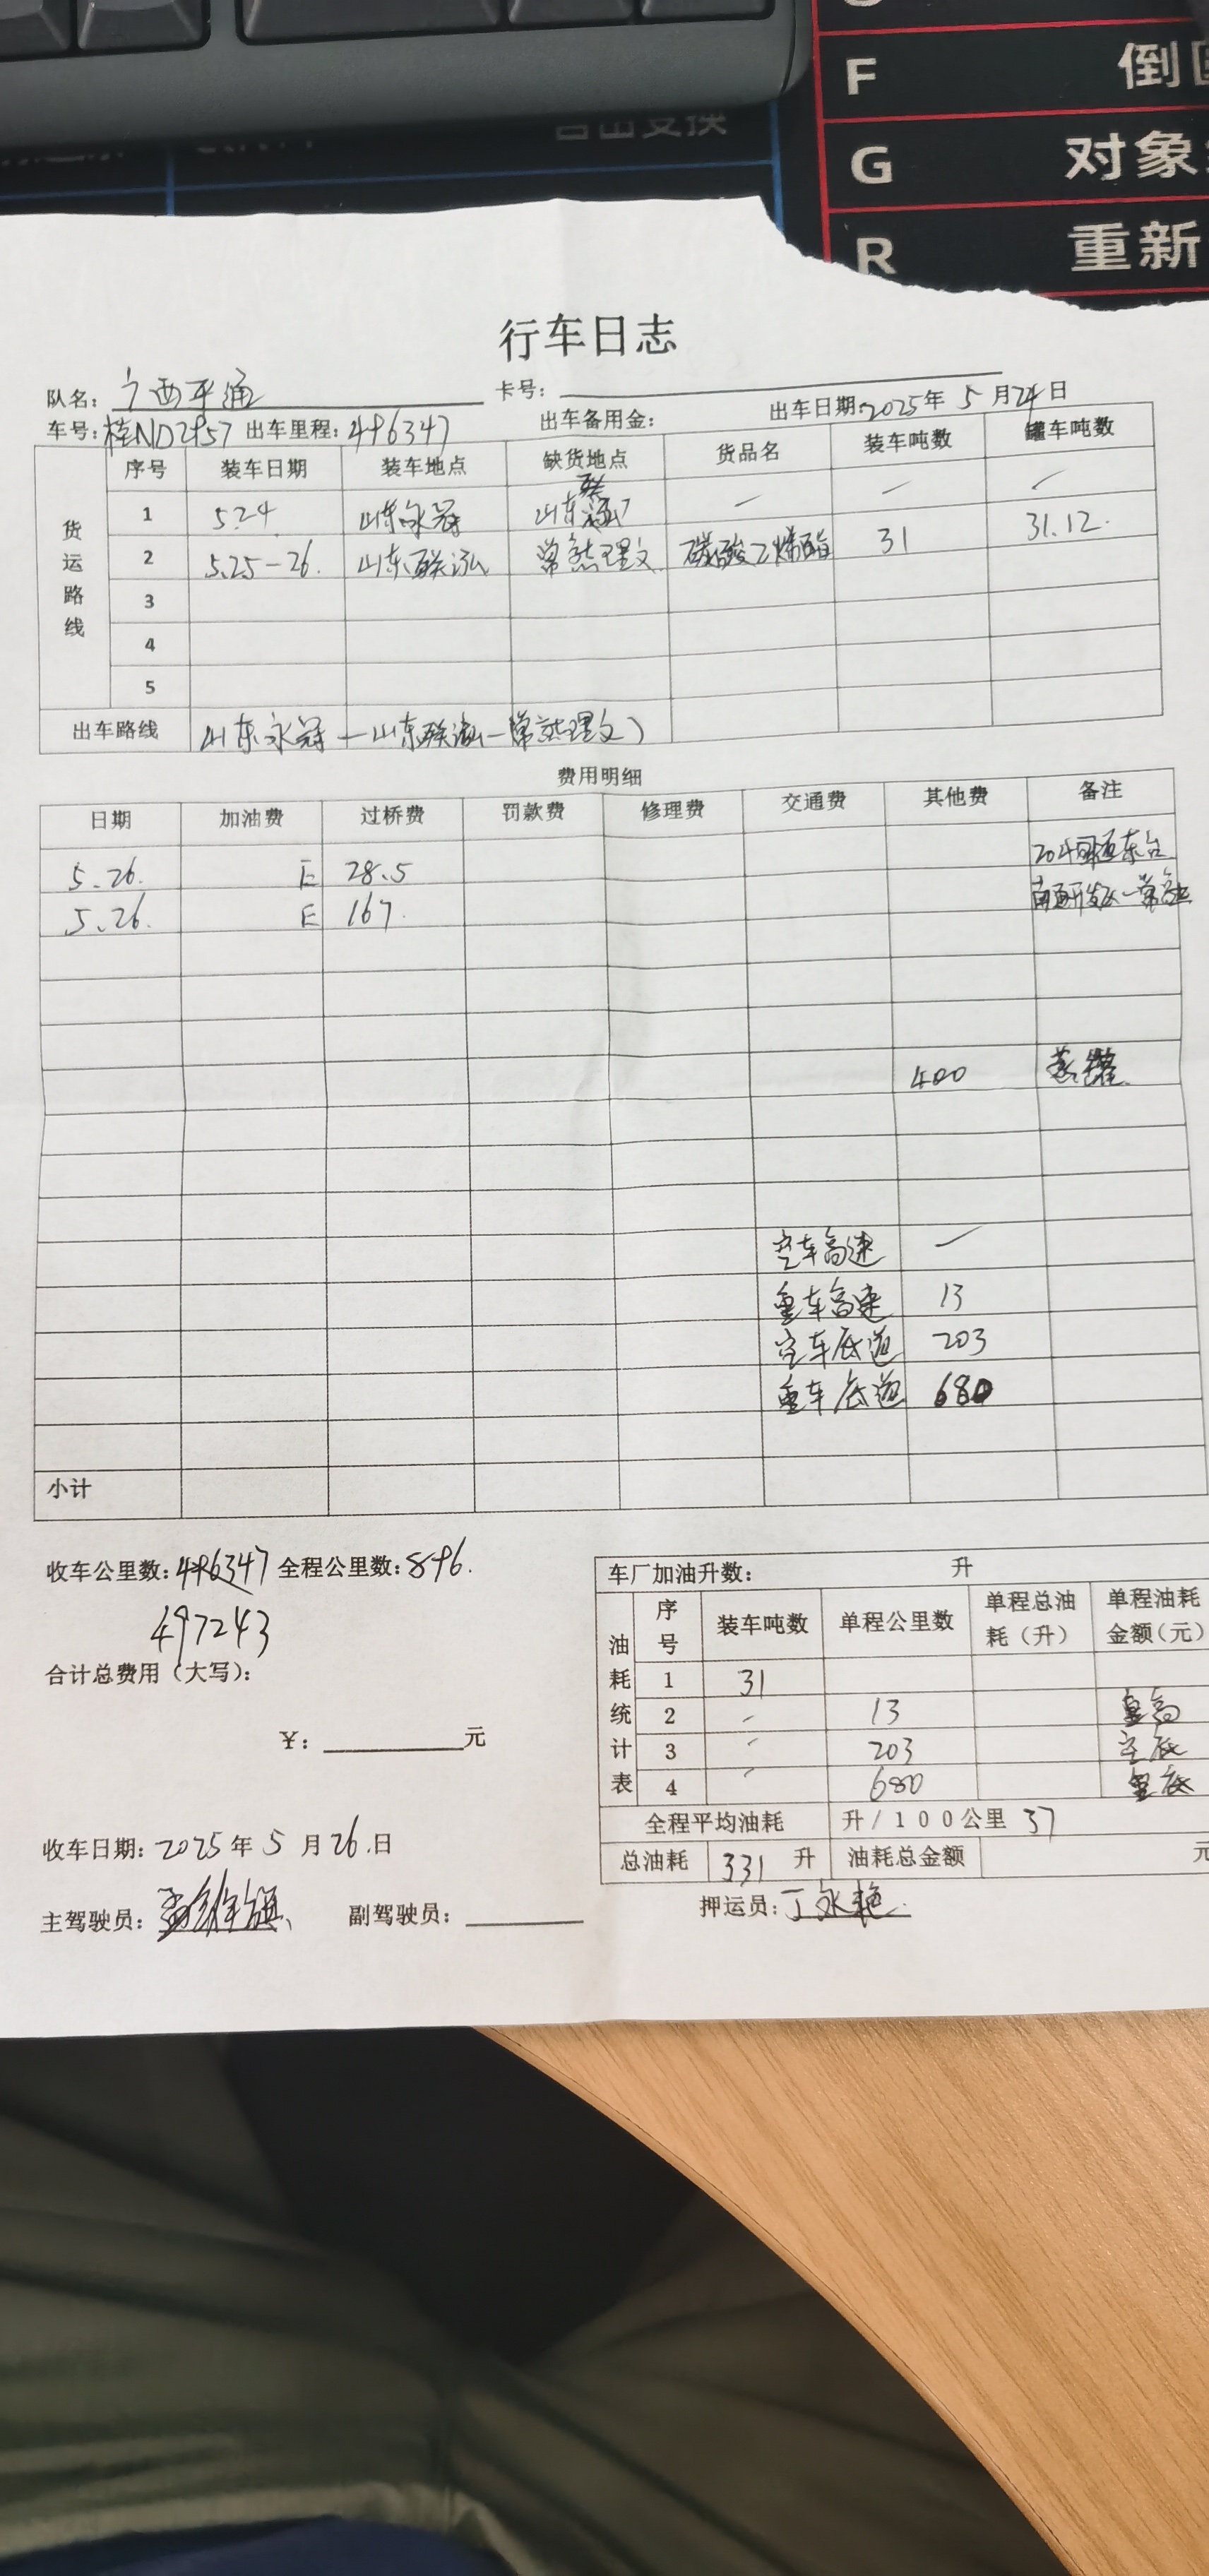 F 倒
自由变换
G 对象
R 重新
行车日志
队名: 广西平通 卡号:
车号: 桂ND2957 出车里程: 496347 出车备用金: 出车日期: 2025年 5 月 24 日
货运路线
序号 装车日期 装车地点 缺货地点 货品名 装车吨数 罐车吨数
1 5.24 山东永冠 山东联泓 — — —
2 5.25-26. 山东联泓 常熟理文 碳酸乙烯酯 31 31.12.
3
4
5
出车路线 山东永冠—山东联泓—常熟理文
费用明细
日期 加油费 过桥费 罚款费 修理费 交通费 其他费 备注
5.26. E 28.5 东台
5.26. E 167. 南通开发区—常熟
400 蒸罐
空车高速 —
重车高速 13
空车底道 203
重车底道 680
小计
收车公里数: 496347 全程公里数: 896.
497243
合计总费用（大写）:
¥: 元
车厂加油升数: 升
油耗统计表
序号 装车吨数 单程公里数 单程总油耗（升） 单程油耗金额（元）
1 31
2 13 重高
3 203 空底
4 680 重底
全程平均油耗 升/100公里 37
总油耗 331 升 油耗总金额 元
收车日期: 2025 年 5 月 26.日
主驾驶员: 副驾驶员: 押运员: 丁永艳